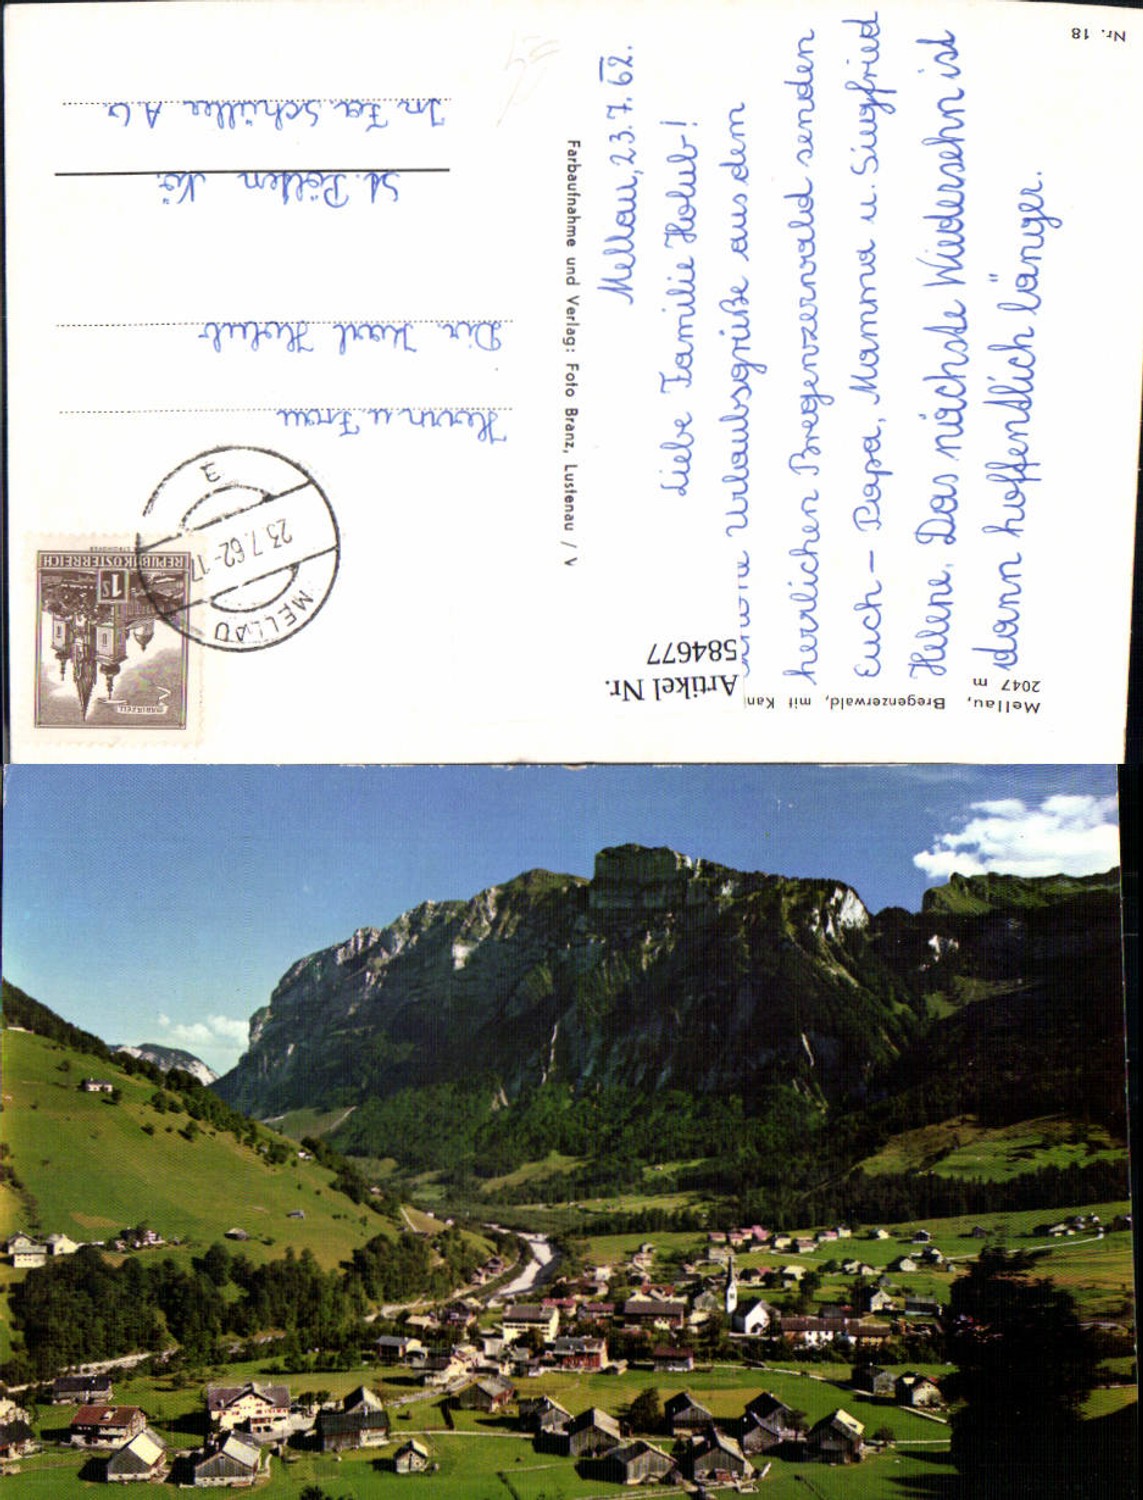 Nr. 18
Mellau, 23. 7. 62.
Liebe Familie Holub!
Urlaubsgrüße aus dem
herrlichen Bregenzerwald senden
Euch – Papa, Mamma u. Siegfried
Helene. Das nächste Wiedersehn ist
dann hoffentlich länger.
Mellau, Bregenzerwald, mit Kan
2047 m
Artikel Nr.
584677
Farbaufnahme und Verlag: Foto Branz, Lustenau / V
MARIAZELL
1S
REPUBLIK ÖSTERREICH
MELLAU
23.7.62-17
Herrn u. Frau
Dir. Karl Holub
St. Pölten NÖ.
In Fa. Schüller A G.